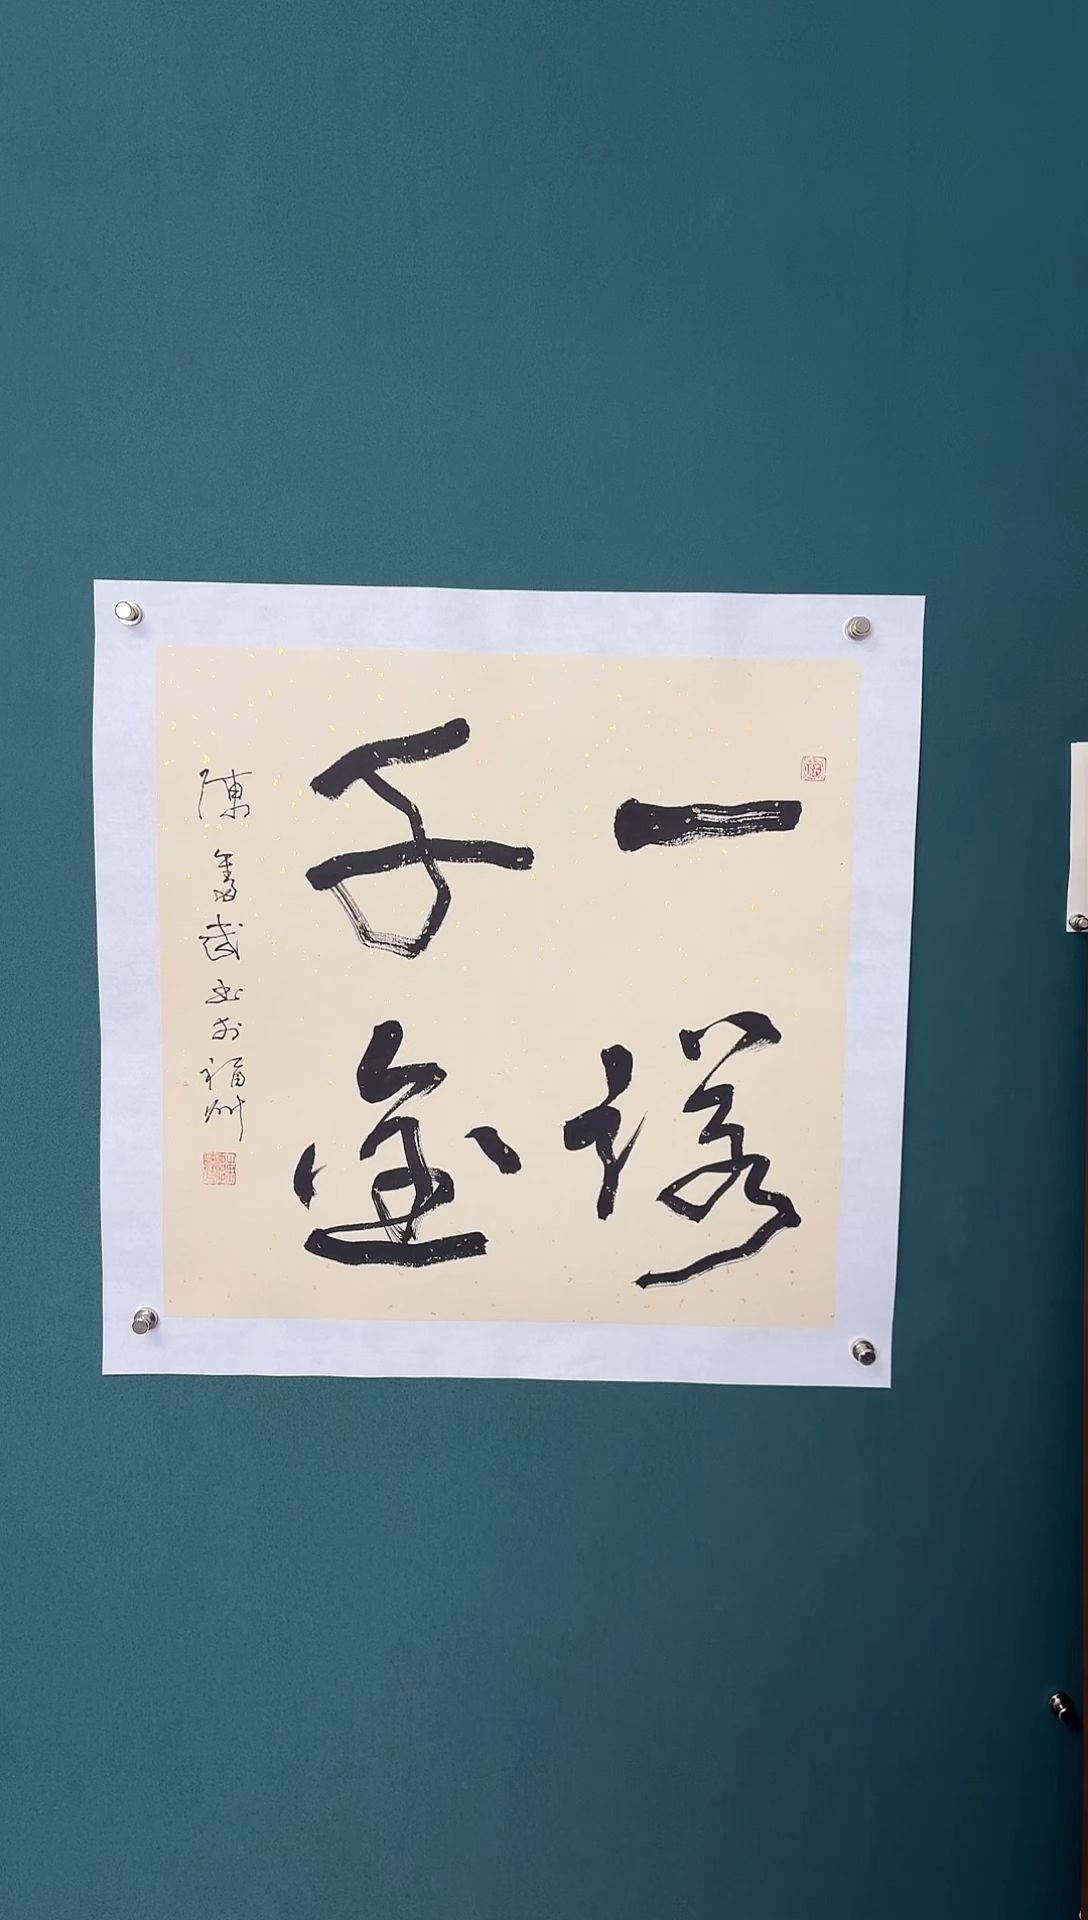 一諾
千金
陳奮武書於福州